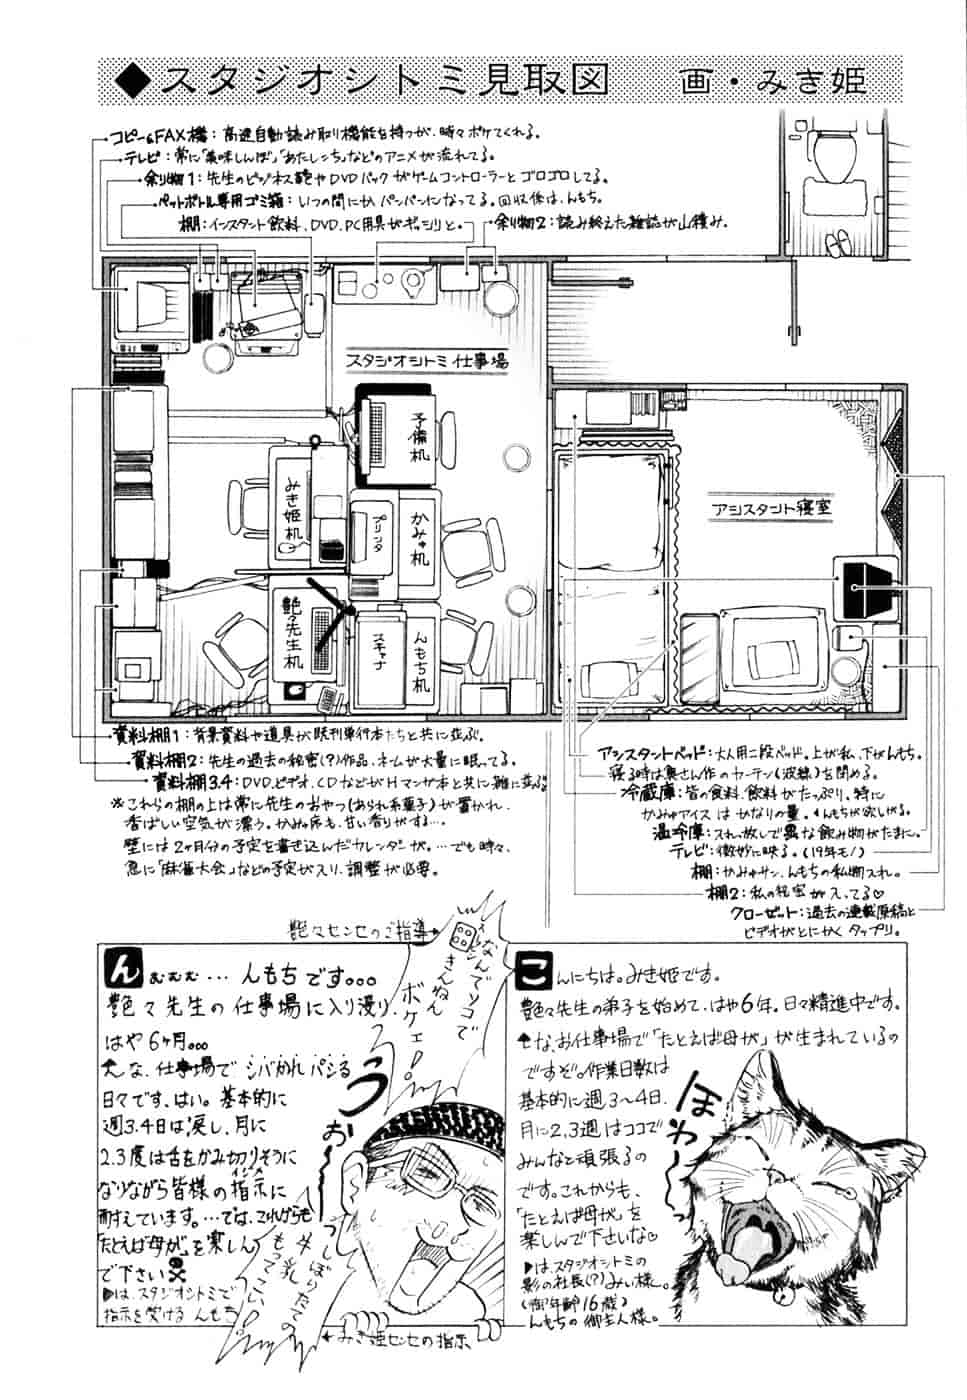 ◆スタジオシトミ見取図　画・みき姫
コピー&FAX機：高速自動読み取り機能を持つが、時々ボケてくれる。
テレビ：常に「美味しんぼ」「あたしンち」などのアニメが流れてる。
余り物1：先生のビジネス鞄やDVDパックがゲームコントローラーとゴロゴロしてる。
ペットボトル専用ゴミ箱：いつの間にかパンパンになってる。回収係は、んもち。
棚：インスタント飲料、DVD、PC用具がギッシリと。
余り物2：読み終えた雑誌が山積み。
スタジオシトミ仕事場
予備机
みき姫机
プリンタ
かみゅ机
艶々先生机
スキャナ
んもち机
アシスタント寝室
資料棚1：背景資料や道具が既刊単行本たちと共に並ぶ。
資料棚2：先生の過去の秘密(?)作品、ネームが大量に眠ってる。
資料棚3.4：DVD、ビデオ、CDなどがHマンガ本と共に雑に並ぶ
※これらの棚の上は常に先生のおやつ(あられ系菓子)が置かれ、
香ばしい空気が漂う。かみゅ席も、甘い香りがする…。
壁には2ヶ月分の予定を書き込んだカレンダーが。…でも時々、
急に「麻雀大会」などの予定が入り、調整が必要。
アシスタントベッド：大人用二段ベッド。上が私、下がんもち。
寝る時は奥さん作のカーテン(波線)を閉める。
冷蔵庫：皆の食料、飲料がたっぷり。特に
かみゅアイスはかなりの量。んもちが欲しがる。
温冷庫：スイッチ入れっ放しで異な飲み物がたまに。
テレビ：微妙に映る。(19年モノ)
棚：かみゅサン、んもちの私物入れ。
棚2：私の秘密が入ってる♡
クローゼット：過去の連載原稿と
ビデオがとにかくタップリ。
艶々センセのご指導→
なんでソコで
きんねん
ボケェ！
んむむむ…んもちです。。。
艶々先生の仕事場に入り浸り、
はや6ヶ月。。。
そんな、仕事場でシバかれパシる
日々です、はい。基本的に
週3.4日は涙し、月に
2.3度は舌をかみ切りそうに
なりながら皆様の指示に
耐えています。…では、これからも
「たとえば母が」を楽しん
で下さい☠
▶は、スタジオシトミで
指示を受けるんもち
うお〜
しぼりたての
牛乳
もってこい！
←みき姫センセの指示
こんにちは。みき姫です。
艶々先生の弟子を始めて、はや6年。日々精進中です。
そんな、お仕事場で「たとえば母が」が生まれているの
ですぞ。作業日数は
基本的に週3〜4日、
月に2,3週はココで
みんなと頑張るの
です。これからも、
「たとえば母が」を
楽しんで下さいな♡
▶は、スタジオシトミの
影の社長(?)みぃ様。
(御年齢16歳)
んもちの御主人様。
ほわ〜